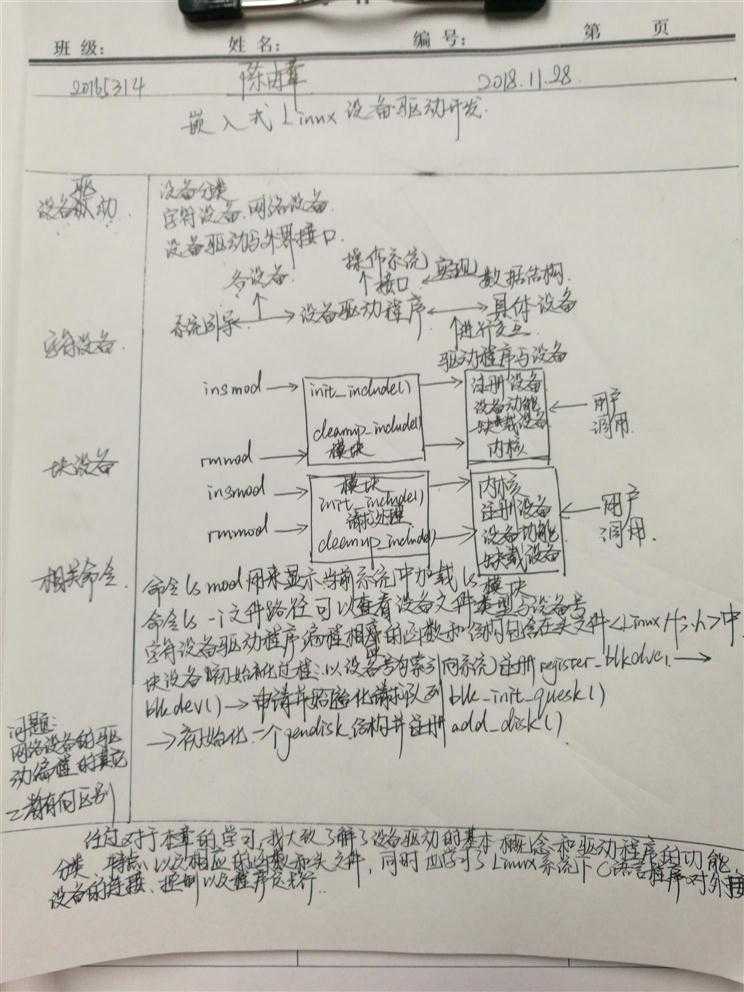 班级: 姓名: 编号: 第 页
20165314 陈 2018.11.28
嵌入式Linnx设备驱动开发.
设备驱动.
设备分类
字符设备.网络设备.
设备驱动与外界接口.
各设备. 操作系统 接口 实现 数据结构.
系统引导 设备驱动程序 具体设备
进行交互
驱动程序与设备
字符设备.
insmod init_include() 注册设备
设备功能
cleanup_include() 卸载设备 用户调用.
rmmod 模块 内核
块设备
insmod 模块 内核
init_include() 注册设备
请求处理 设备功能 用户调用.
rmmod cleanup_include() 卸载设备
相关命令.
命令lsmod用来显示当前系统中加载ls模块
命令ls -i文件路径可以查看设备文件类型与设备号
字符设备驱动程序编程相应的函数和结构包含在头文件<Linux/fs.h>中.
块设备的初始化过程:以设备号为索引向系统注册register_blkdve1
blkdev() 申请并初始化请求队列 blk_init_quesk()
初始化一个gendisk结构并注册add_disk()
问题:
网络设备的驱动编程的其它二者有何区别
经过对于本章的学习,我大致了解了设备驱动的基本概念和驱动程序的功能
分类、特点、以及相应的函数和头文件,同时也学习了Linux系统下C语言程序对外接
设备的连接、控制以及程序